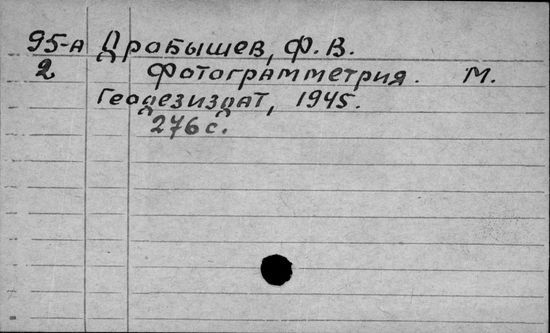 95-А Дробышев, Ф. В.
2 Фотограмметрия. М.
Геодезиздат, 1945.
276 с.